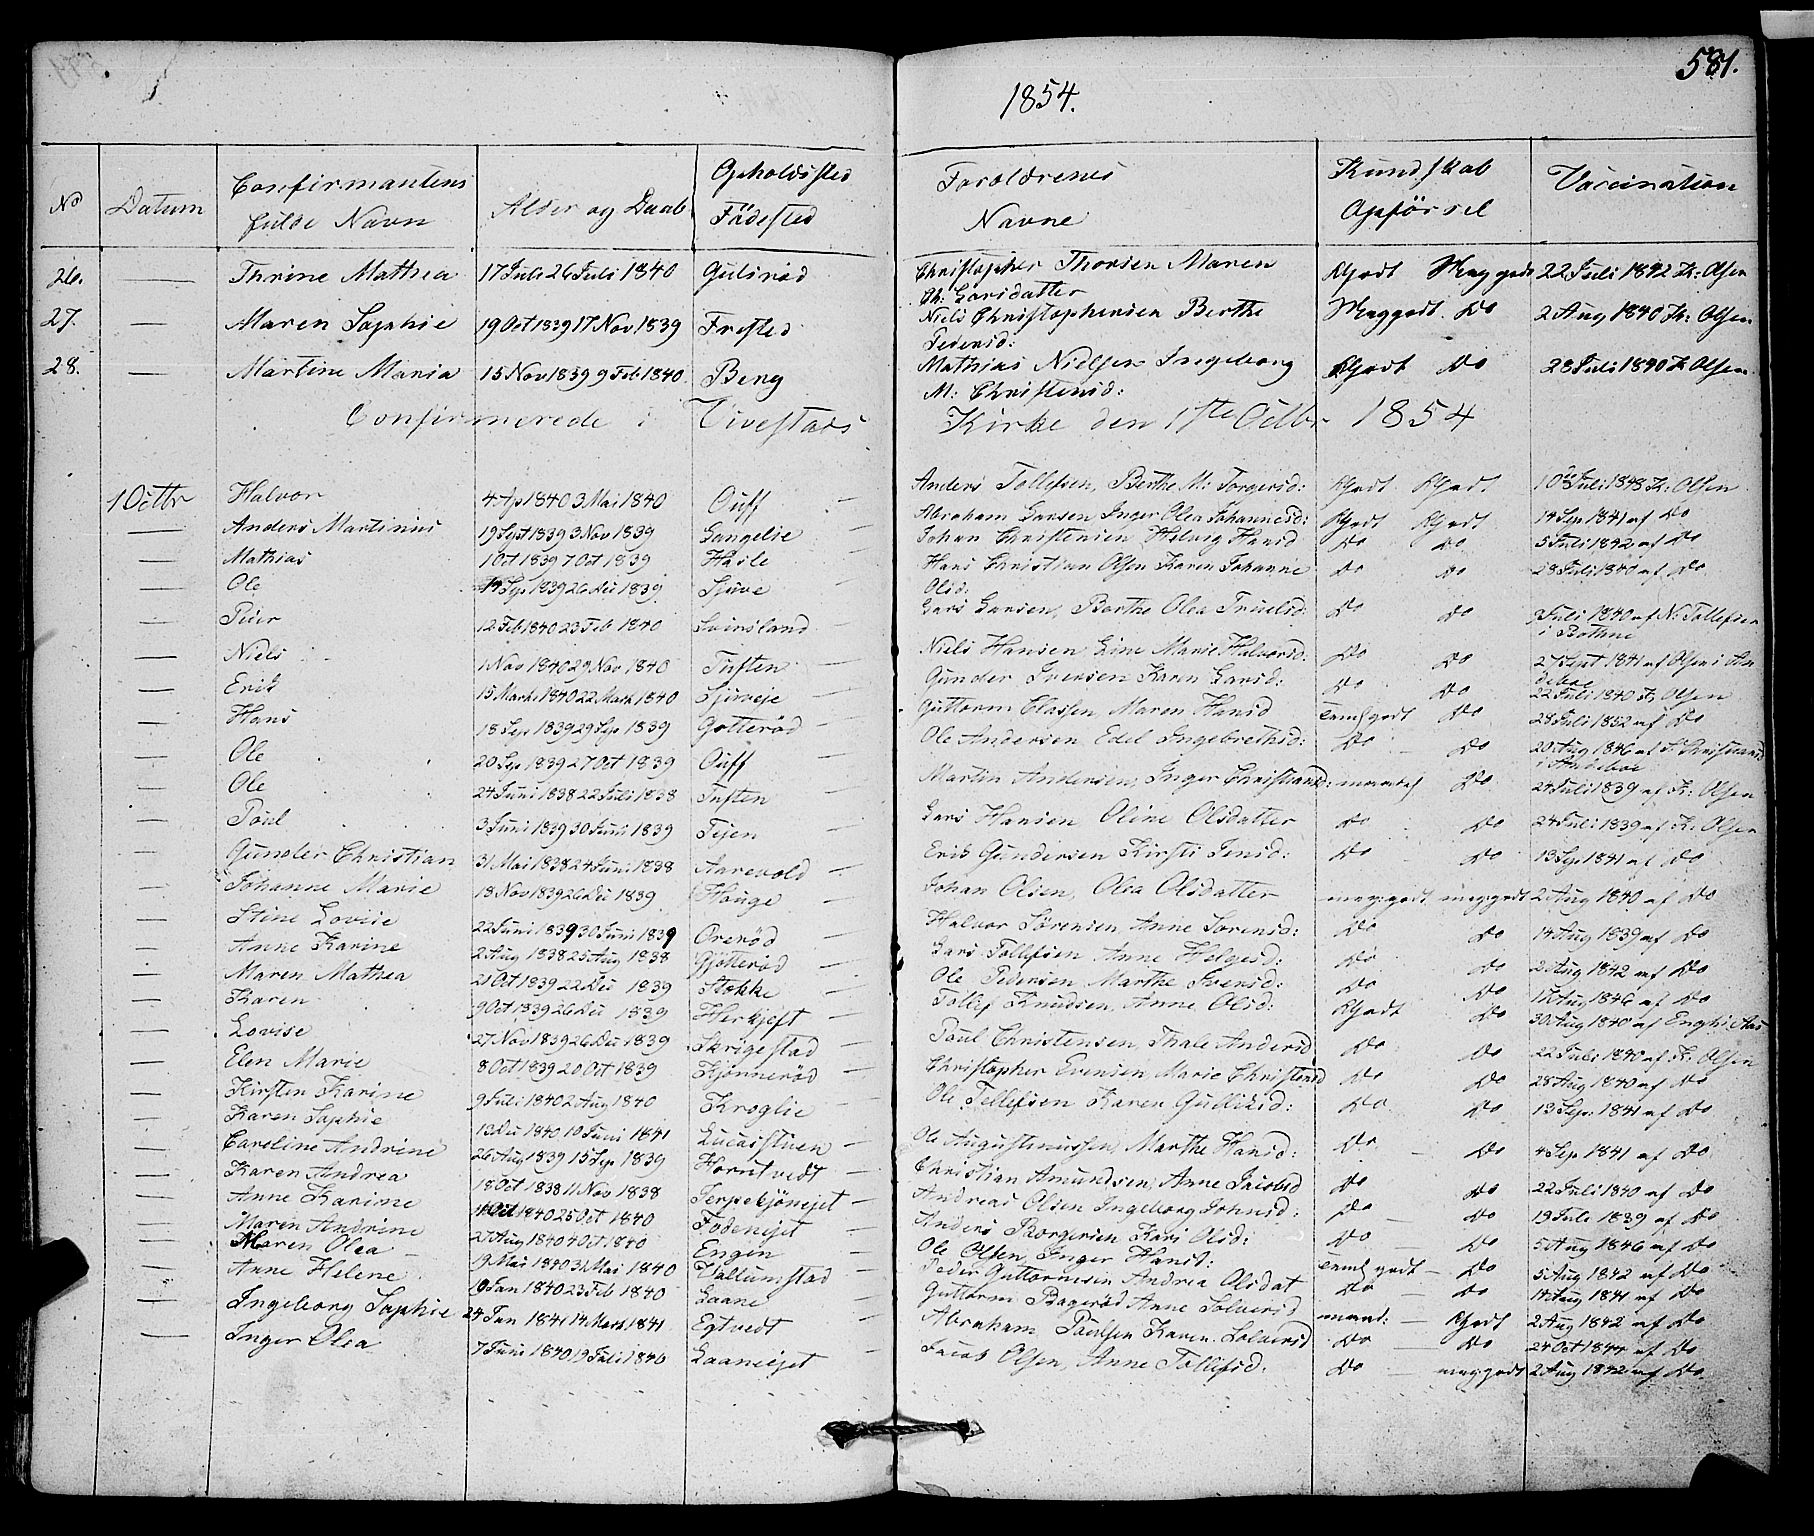 581.
1854.
No Datum Confirmantens fulde Navn Alder og Daab Opholdssted Födested Foroldrenes Navne Kundskab Opförsel Vaccination
26. — Thrine Mathea 17 Juli 26 Juli 1840 Gulsröd Christopher Thorsen Maren Ch: Larsdatter Godt Meg godt 22 Juli 1842 K: Olsen
27. — Maren Sophie 19 Oct 1839 17 Nov 1839 Frested Niels Christophersen Berthe Pedersd: Meg godt. Do 2 Aug 1840 K: Olsen
28. — Martine Maria 15 Nov 1839 9 Feb 1840 Berg Mathias Nielsen Ingeborg M: Christensd: Godt Do 28 Juli 1840 K Olsen
Confirmerede i Vivestads Kirke den 1ste Octbr 1854
1 Octbr Halvor 4 Ap 1840 3 Mai 1840 Ouff — Anders Tollefsen, Berthe M: Torgersd: Godt Godt 10 Juli 1848 K: Olsen
— Anders Martinius 19 Sept 1839 3 Nov 1839 Langelie — Abraham Larsen Inger Olea Johannesd: Godt Godt 14 Sep 1841 af Do
— Mathias 1 Oct 1839 7 Oct 1839 Hasle — Johan Christensen Helvig Hansd Do Do 5 Juli 1842 af Do
— Ole Sep 1839 26 Dec 1839 Sjuve — Hans Christian Olsen Karen Johanne Olsd: Do Do 28 Juli 1840 af Do
— Peder 12 Feb 1840 23 Feb 1840 Svinsland — Lars Larsen, Berthe Olea Truelsd: Do Do Juli 1840 af N: Tollefsen i Bothne
— Niels 1 Nov 1840 29 Nov 1840 Tuften — Niels Hansen Line Marie Halvorsd: Do Do 27 Sept 1841 af Olsen i Andeboe
— Erik 15 Marts 1840 22 Mark 1840 Sjuveje — Gunder Iversen Karen Larsd: Do Do 22 Juli 1840 K Olsen
— Hans 18 Sep 1839 29 Sep 1839 Gotteröd — Guttorm Classen, Maren Hansd Teml godt Do 28 Juli 1852 af Do
— Ole 20 Sep 1839 27 Oct 1839 Ouff — Ole Andersen Edel Ingebrethsd: Do Do 20 Aug 1846 af Christiansd i Andeboe
— Ole 24 Juni 1838 22 Juli 1838 Tuften — Martin Andersen, Inger Christiansd: Do 24 Juli 1839 af K: Olsen
— Poul 3 Juni 1839 30 Juni 1839 Tejen — Lars Hansen Oline Olsdatter Do Do 24 Juli 1839 af K: Olsen
— Gunder Christian 31 Mai 1838 24 Juni 1838 Aarevold — Erik Gundersen Kirsti Jensd: Do — Do 13 Sep 1841 af Do
— Johanne Marie 18 Nov 1839 26 Dec 1839 Houge — Johan Olsen, Olea Olsdatter meg:godt meg:godt 2 Aug 1840 af Do
— Stine Lovise 22 Juni 1839 30 Juni 1839 Oreröd — Halvor Sörensen, Anne Sörensd: Do Do 14 Aug 1839 af Do
— Anne Karine 2 Aug 1838 25 Aug 1838 Gjötteröd — Lars Tollefsen Anne Helgesd: Do Do 2 Aug 1842 af Do
— Maren Mathea 21 Oct 1839 22 Dec 1839 Stokke — Ole Pedersen Marthe Iversd: Do Do Aug 1846 af Do
— Karen 9 Oct 1839 26 Dec 1839 Herkjeft — Tollef Knudsen, Anne Olsd: Godt Do 30 Aug 1840 af Engh i Aas
— Lovise 27 Nov 1839 26 Dec 1839 Skrigestad — Paul Christensen, Thale Andersd Do Do 22 Juli 1840 af K: Olsen
— Elen Marie 8 Oct 1839 20 Oct 1839 Kjönneröd — Christopher Evensen Marie Christensd Do Do 28 Aug 1840 af Do
— Kirsten Karine 9 Juli 1840 2 Aug 1840 Kroglie — Ole Tollefsen Karen Gulliksd: Do Do 13 Sep: 1841 af Do
— Karen Sophie 13 Dec 1840 10 Juni 1841 Lucasstuen — Ole Augustinussen, Marthe Hansd: Do — Do 4 Sep 1841 af Do
— Caroline Andrine 26 Aug 1839 15 Sep 1839 Horntvedt — Christian Amundsen, Anne Jacobsd Do Do 22 Juli 1840 af Do
— Karen Andrea 18 Oct 1838 11 Nov 1838 Terpekjönejet — Andreas Olsen Ingeborg Johnsd: Do Do 19 Juli 1839 af Do
— Anne Karine Oct 1840 25 Oct 1840 Fodenejet — Anders Borgersen Kari Olsd: Do — Do 5 Aug 1846 af Do
— Maren Andrine 27 Aug 1840 4 Oct 1840 Engen — Ole Olsen, Inger Hansd: Teml godt — Do 5 Aug 1842 af Do
— Maren Olea 9 Mai 1840 31 Mai 1840 Vallumstad — Peder Guttormsen Andrea Olsdat Do — Do 14 Aug 1841 af Do
— Anne Helene 19 Jan 1840 23 Feb 1840 Laane — Guttorm Bageröd Anne Solversd maad: — Godt 2 Aug 1842 af Do
— Ingeborg Sophie 24 Jan 1841 14 Mark 1841 Egtvedt — Abraham Paulsen Karen Solversd Do — Do 24 Oct 1844 af Do
— Inger Olea 7 Juni 1840 19 Juli 1840 Laaneiejet — Jacob Olsen, Anne Tollefsd: Do — meg:godt 2 Aug 1842 af Do